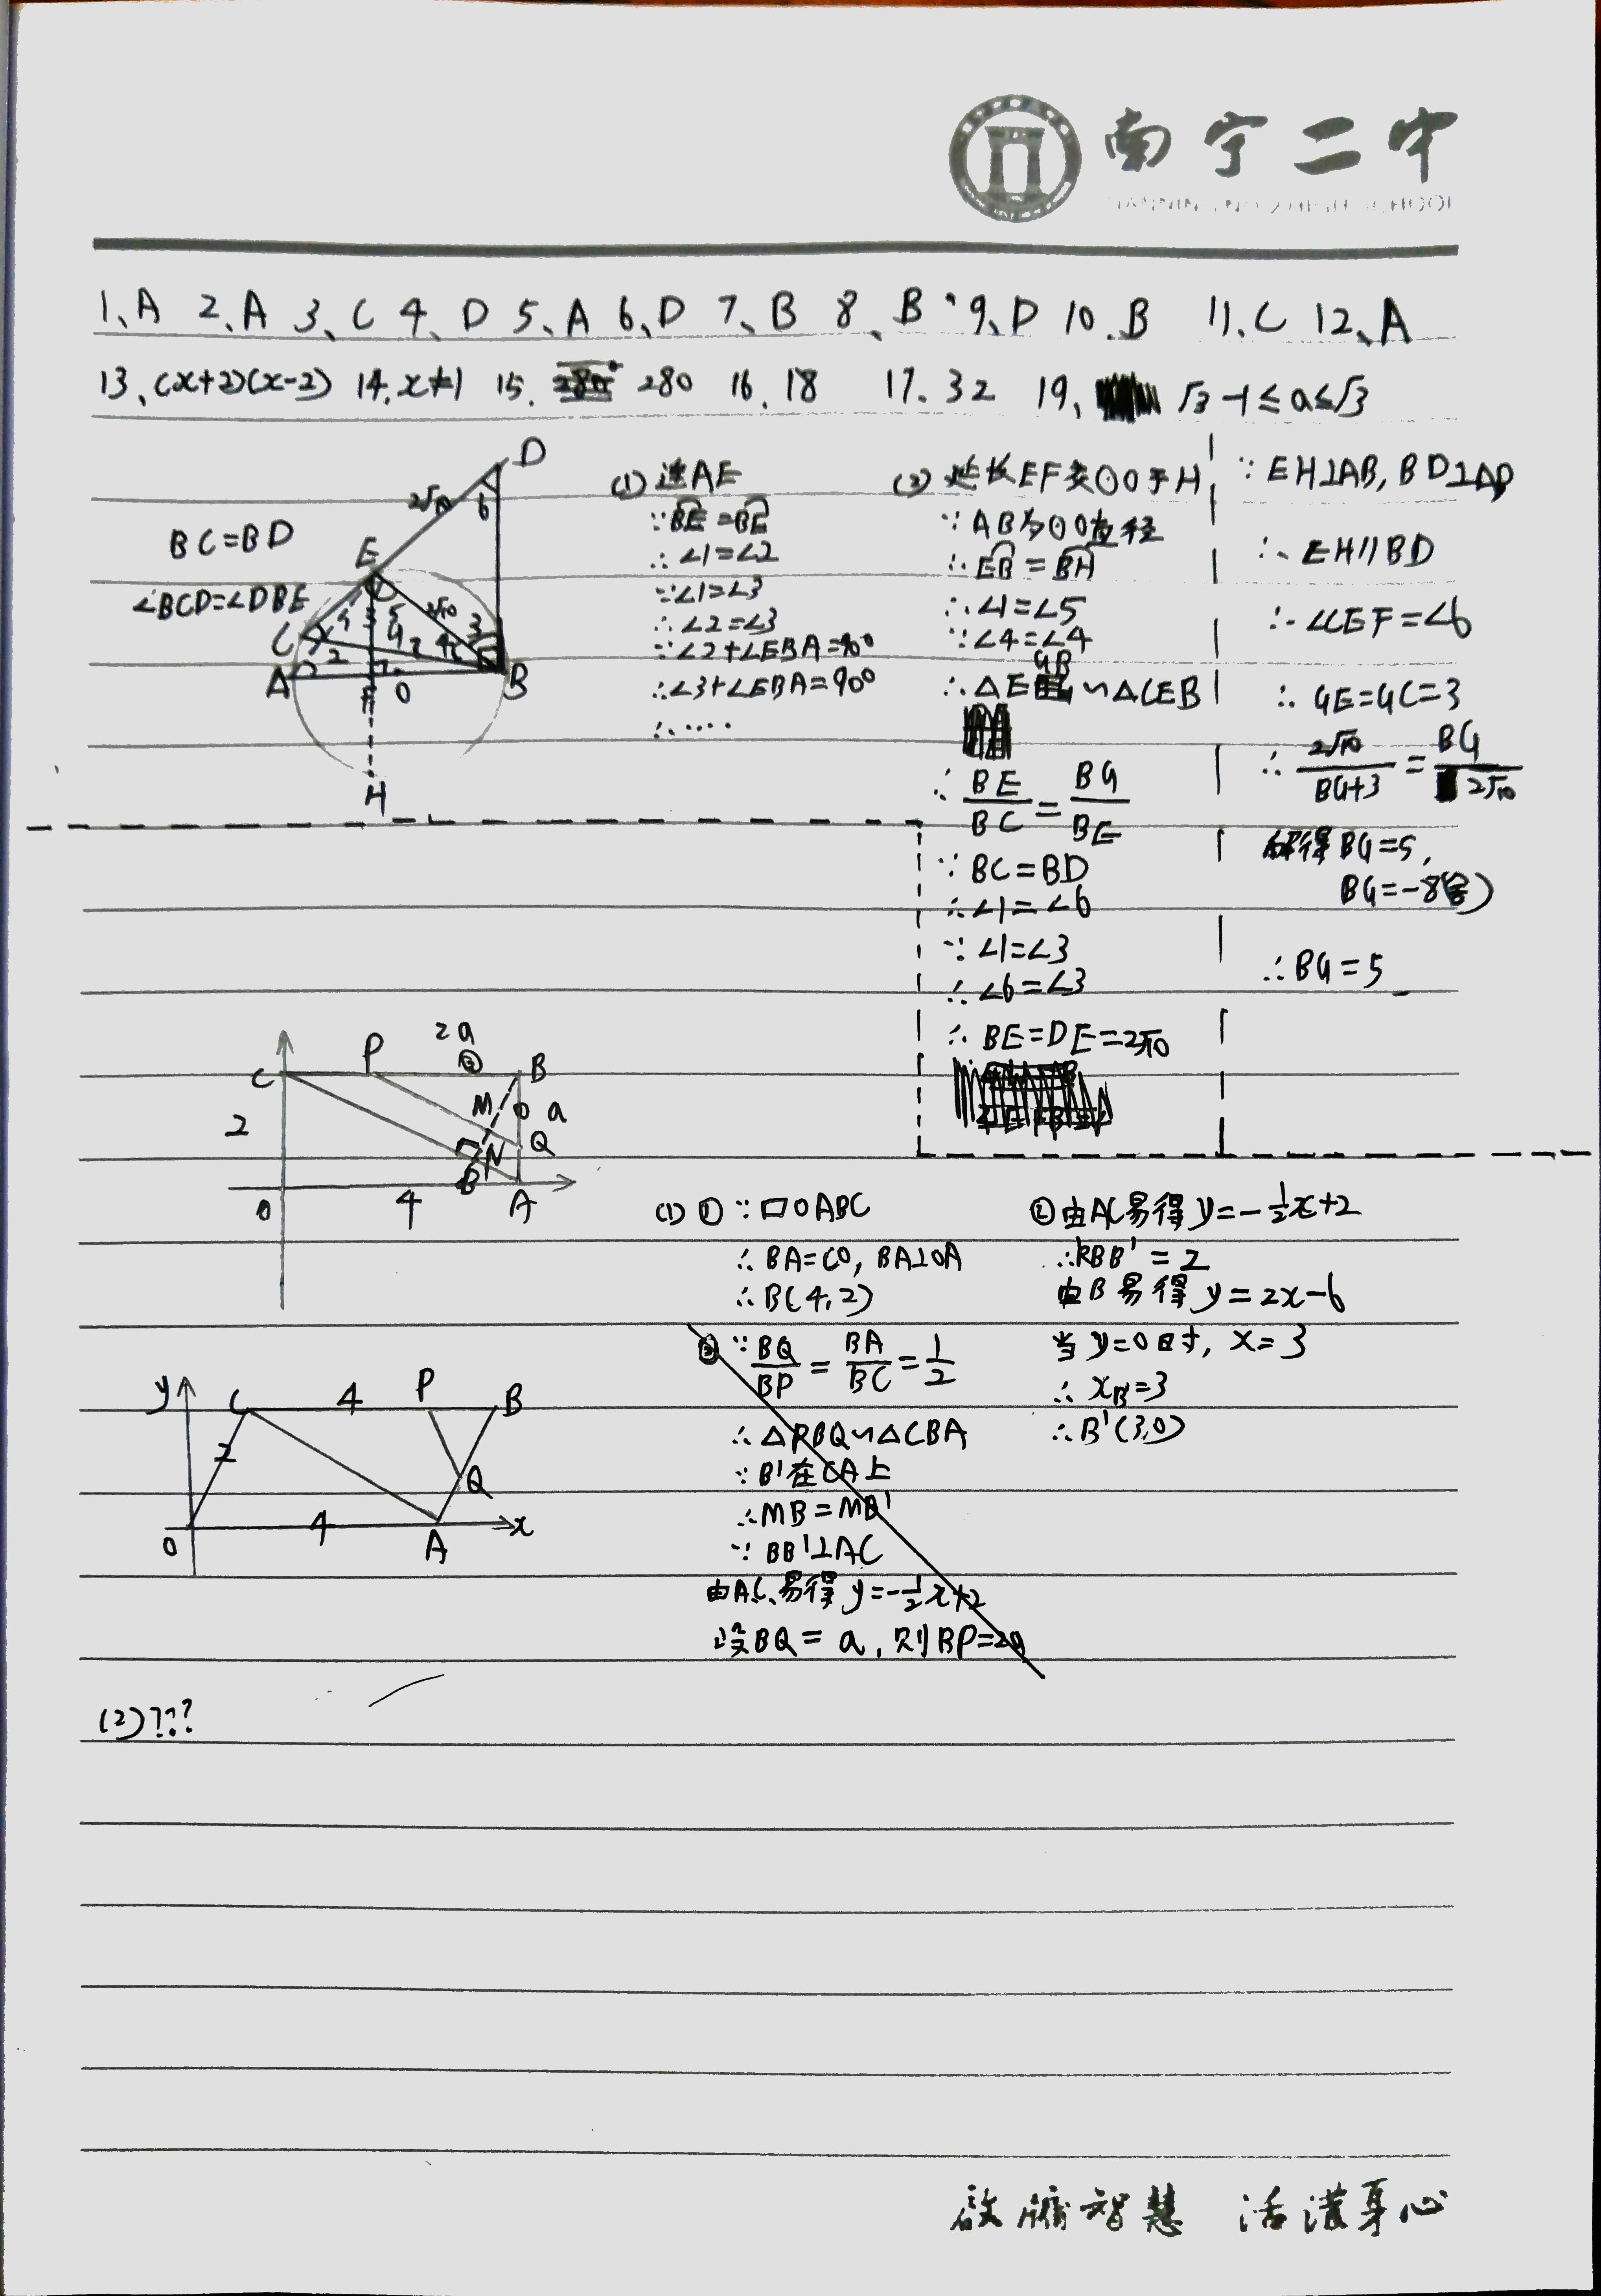 南宁二中
1、A 2、A 3、C 4、D 5、A 6、D 7、B 8、B 9、D 10.B 11、C 12、A
13、(x+2)(x-2) 14.x≠1 15. 280 16.18 17.32 19、 √3-1≤a≤√3
BC=BD
∠BCD=∠DBE
D
2√10
6
E
1
3
5
2√10
3
C
4
2
A
F
O
B
H
(1) 连AE
∵BE=BE
∴∠1=∠2
∵∠1=∠3
∴∠2=∠3
∵∠2+∠EBA=90°
∴∠3+∠EBA=90°
∴····
(2) 延长EF交⊙O于H
∵AB为⊙O直径
∴EB=BH
∴∠1=∠5
∵∠4=∠4
∴△EGB∽△CEB
∴BE/BC=BG/BE
∵BC=BD
∴∠1=∠6
∵∠1=∠3
∴∠6=∠3
∴BE=DE=2√10
∵EH⊥AB, BD⊥AB
∴EH∥BD
∴∠CEF=∠6
∴GE=GC=3
∴2√10/BG+3=BG/2√10
解得BG=5,
BG=-8(舍)
∴BG=5
2a
C
P
②
B
M
a
2
N
Q
B'
O
4
A
(1)①∵□OABC
∴BA=CO, BA⊥OA
∴B(4,2)
②∵BQ/BP=BA/BC=1/2
∴△PBQ∽△CBA
∵B'在CA上
∴MB=MB'
∵BB'⊥AC
由AC易得y=-1/2x+2
设BQ=a,则BP=2a
②由AC易得y=-1/2x+2
∴kBB'=2
由B易得y=2x-6
当y=0时, x=3
∴xB'=3
∴B'(3,0)
y
C
4
P
B
2
Q
O
4
A
x
(2)???
启牖智慧 活潢身心